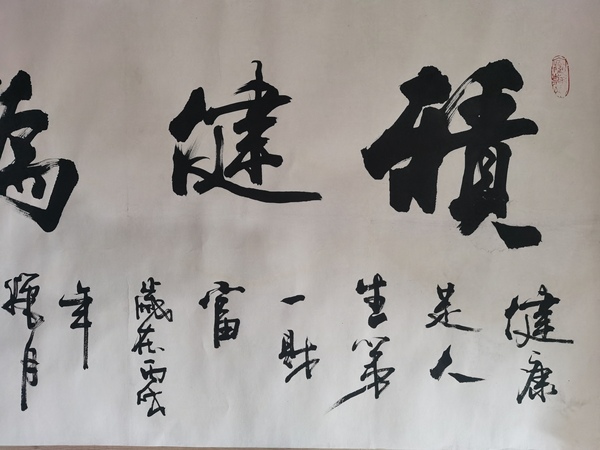 積健為
健康
是人
生第
一財
富
歲在丙戌
年
臘月